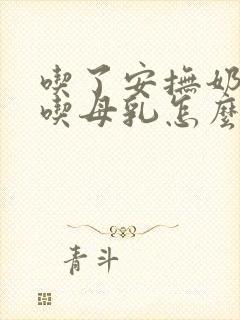 喫了安撫奶
喫母乳怎麼
青斗